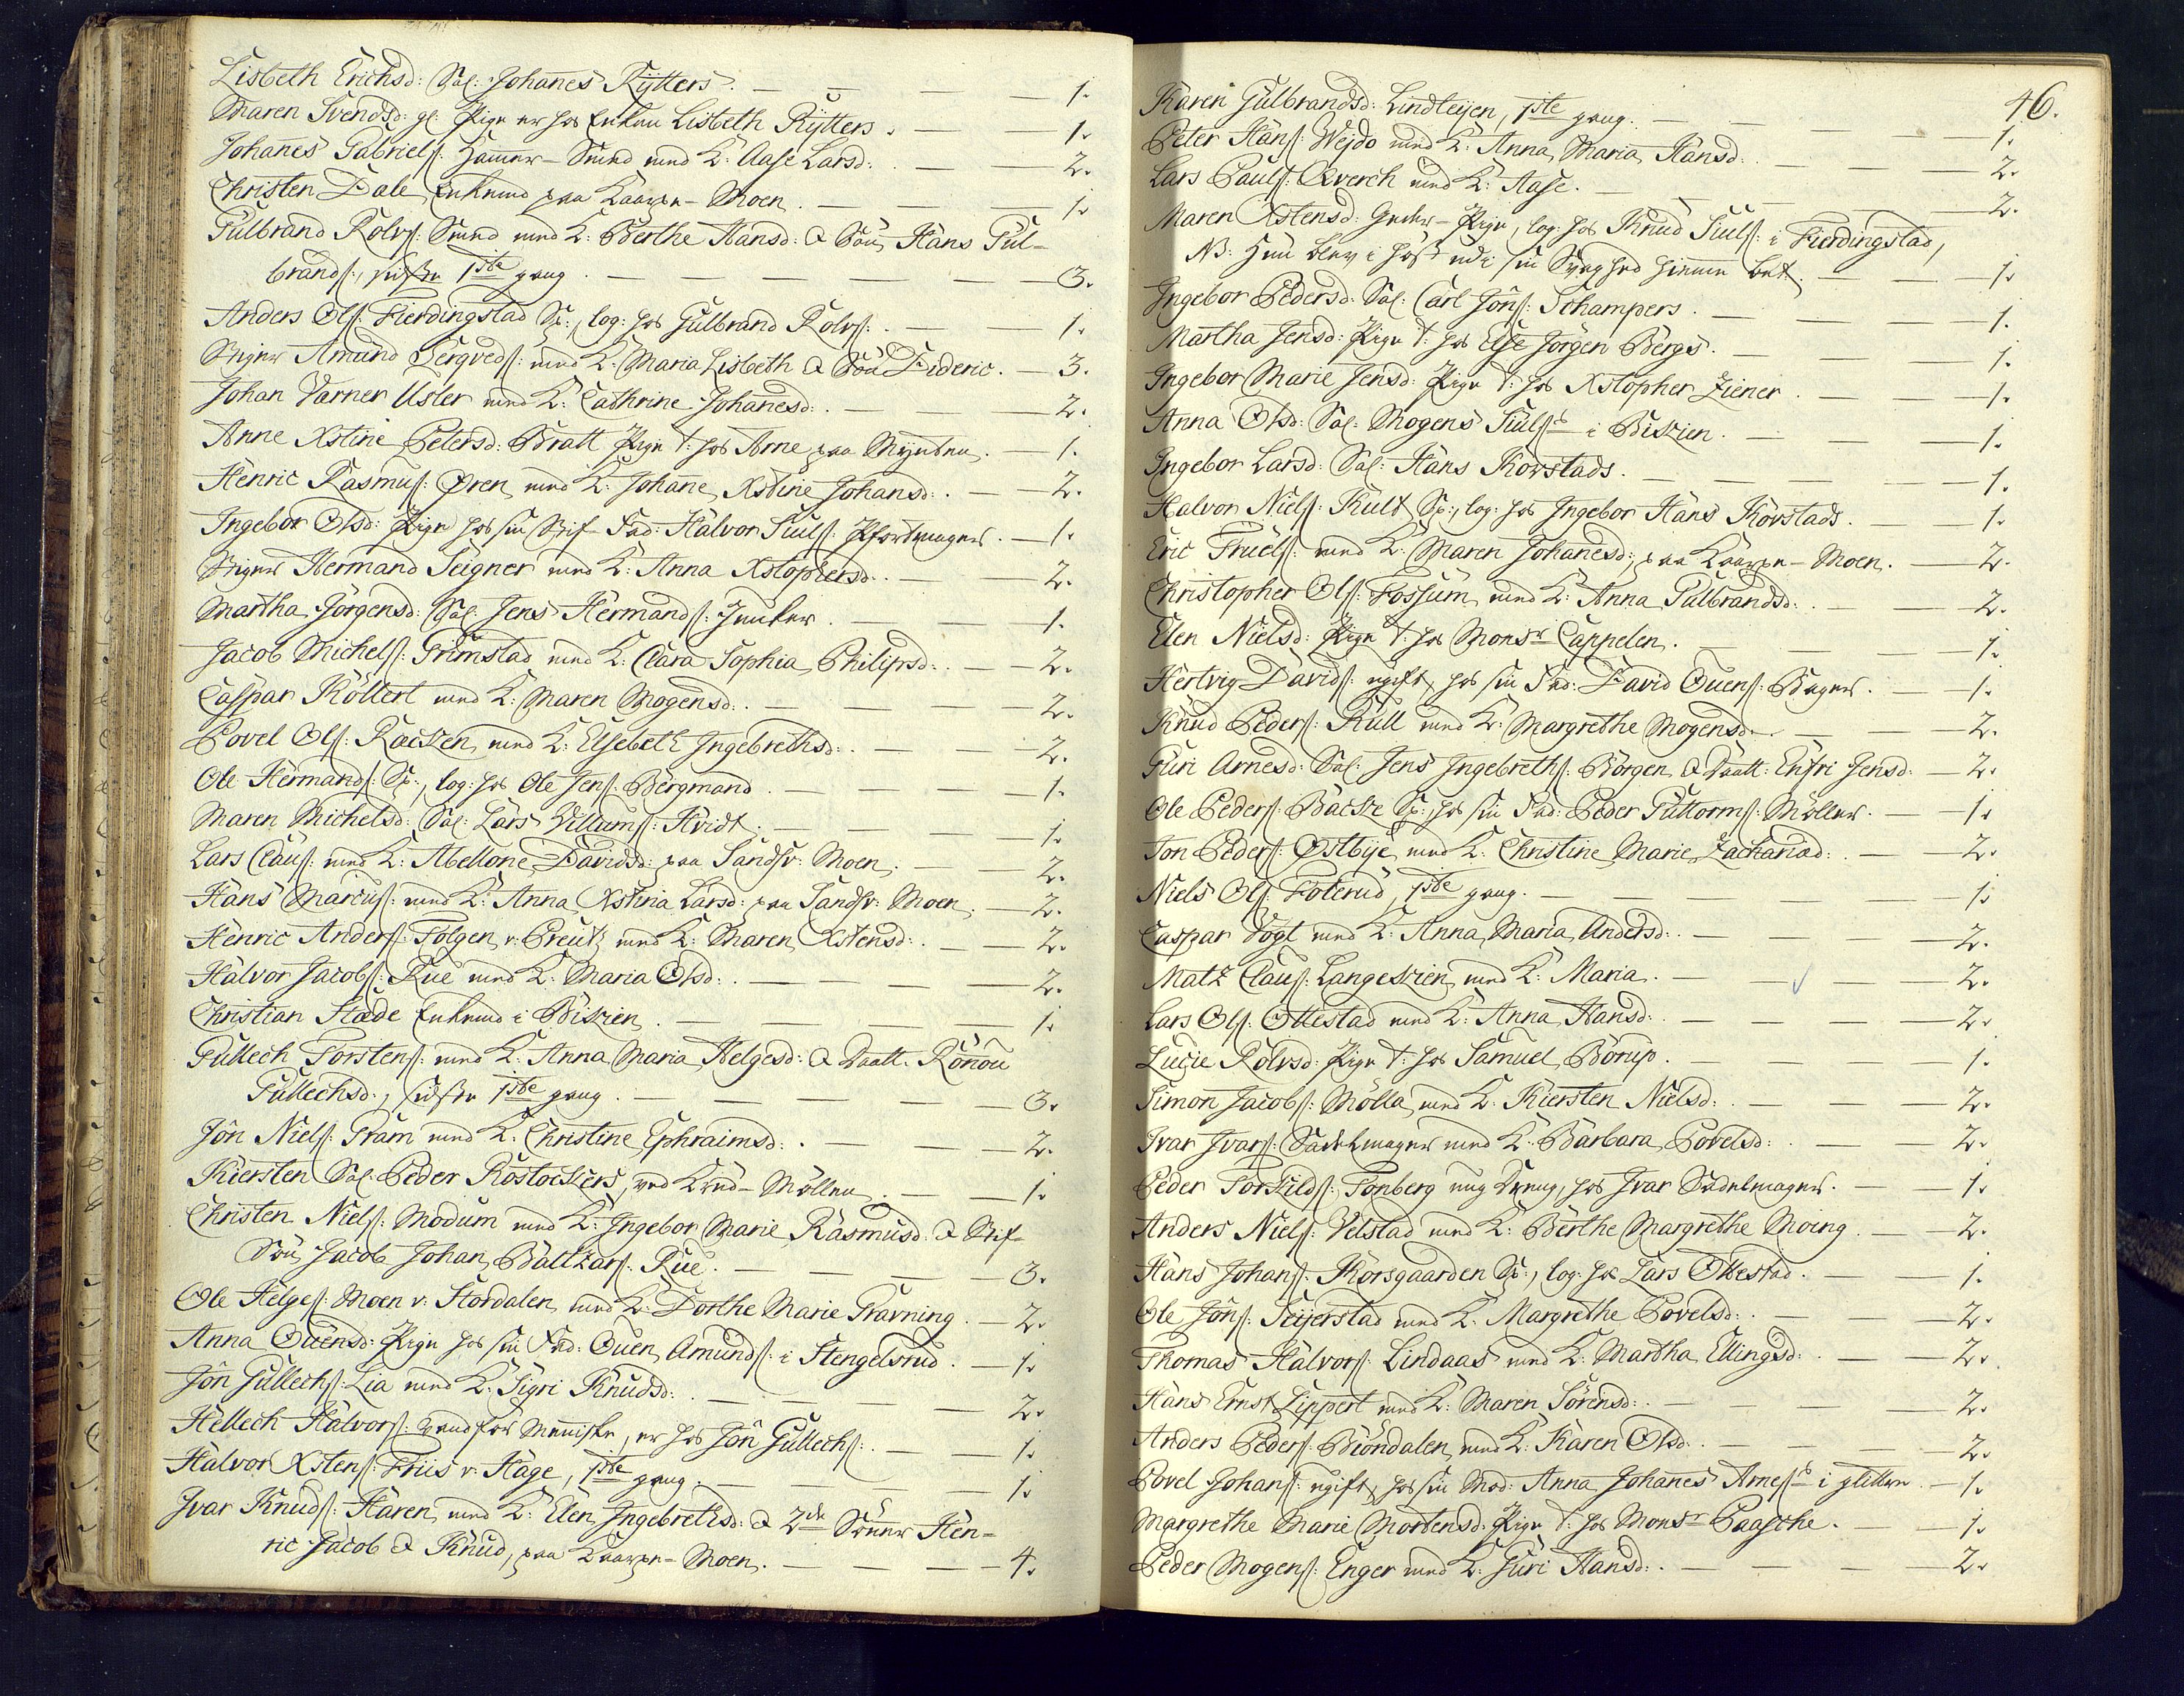 Lisbeth Erichsd: Sal: Johanes Rytters. 1.
Maren Svendsd: gl: Pige er hos Enken Lisbeth Rytters. 1.
Johanes Gabriels: Hammer-Smed med K: Aase Larsd: 2.
Christen Dale Enkemand paa Moen. 1.
Gulbrand Rolvs: Smed med K: Berthe Hansd: & Søn Hans Gul-
brands:, sidste 1ste gang. 3.
Anders Ols: Fierdingstad log: hos Gulbrand Rolvs: 1.
Stiger Amund Bergveds: med K: Maria Lisbeth & Søn Dideric. 3.
Johan Varner Usler med K: Cathrine Johanesd: 2.
Anne Xstine Petersd: Bratt Pige t: hos Arne paa Mynten. 1.
Henric Rasmus: Øren med K: Johane Xstine Johansd: 2.
Ingebor Olsd: Pige hos sin Stif-Fad: Halvor Siuls: 1.
Stiger Hermand Seigner med K: Anna Xstophersd: 2.
Martha Jørgensd: Sal: Jens Hermands: Juncker. 1.
Jacob Michels: Grimstad med K: Clara Sophia Philipsd: 2.
Caspar Köllert med K: Maren Mogensd: 2.
Povel Ols: Racken med K: Elsebeth Ingebrethsd: 2.
Ole Hermands: log: hos Ole Jens: Bergmand. 1.
Maren Michelsd: Sal: Lars Villums: Hvidt. 1.
Lars Claus: med K: Abellone Davidsd: paa Sandsv: Moen. 2.
Hans Marcus: med K: Anna Xstina Larsd: paa Sandsv: Moen. 2.
Henric Anders: Folgen v: Preutz med K: Maren Xstensd: 2.
Halvor Jacobs: Rue med K: Maria Olsd: 2.
Christian Stade Enkemand i Biskien. 1.
Gullech Torstens: med K: Anna Maria Helgesd: & Daatt: Rönou
Gullechsd:, sidste 1ste gang. 3.
Jön Niels: Gram med K: Christine Ephraimsd: 2.
Kiersten Sal: Peder Rostockers, ved Krud-Møllen. 1.
Christen Niels: Modum med K: Ingebor Marie Rasmusd: & Stif-
Søn Jacob Johan Baltzars: Rue. 3.
Ole Helges: Moen v: Stordalen med K: Dorthe Marie Gravning. 2.
Anna Ouensd: Pige hos sin Fad: Ouen Amunds: i Stengelsrud. 1.
Jön Gullechs: Lia med K: Sigri Knudsd: 2.
Hellech Halvors: vanfør Menniske, er hos Jön Gullechs: 1.
Halvor Xstens: Friis v: Hage, 1ste gang. 1.
Ivar Knuds: Haren med K: Elen Ingebrethsd: & 2de Sønner Hen-
ric Jacob & Knud, paa Moen. 4.
46.
Karen Gulbrandsd: Lindteijen, 1ste gang. 1.
Peter Hans: Wejdo med K: Anna Maria Hansd: 2.
Lars Pauls: Qverch med K: Aase. 2.
Maren Xstensd: Pige, log: hos Knud Siuls: i Fierdingstad,
NB: Hun blev i høst udi sin Svaghed hiemme bet: 1.
Ingebor Pedersd: Sal: Carl Jöns: Schampers. 1.
Martha Jensd: Pige t: hos Else Jørgen Bergs. 1.
Ingebor Marie Jensd: Pige t: hos Xstopher Ziener. 1.
Anna Olsd: Sal: Mogens Siuls: i Biskien. 1.
Ingebor Larsd: Sal: Hans Korstads. 1.
Halvor Niels: Kult log: hos Ingebor Hans Korstads. 1.
Eric Truels: med K: Maren Johanesd: paa Moen. 2.
Christopher Ols: Fossum med K: Anna Gulbrandsd: 2.
Elen Nielsd: Pige t: hos Monsr Cappelen. 1.
Hertvig Davids: ugift, hos sin Fad: David Ouens: Bager. 1.
Knud Peders: Kull med K: Margrethe Mogensd: 2.
Guri Arnesd: Sal: Jens Ingebreths: Børgen & Daatt: Enfri Jensd: 2.
Ole Peders: Backe hos sin Fad: Peder Guttorms: Møller. 1.
Jon Peders: Østbye med K: Christine Marie Zachariad: 2.
Niels Ols: Foterud, 1ste gang. 1.
Caspar Vogt med K: Anna Maria Andersd: 2.
Matz Claus: Langeskien med K: Maria. 2.
Lars Ols: Ottestad med K: Anna Hansd: 2.
Lucie Rolvsd: Pige t: hos Samuel Borup. 1.
Simon Jacobs: Mölla med K: Kiersten Nielsd: 2.
Ivar Ivars: Sadelmager med K: Barbara Povelsd: 2.
Peder Torkilds: Tonberg ung Dreng, hos Ivar Sadelmager. 1.
Anders Niels: Velstad med K: Berthe Margrethe Moing. 2.
Hans Johans: Korsgaarden log: hos Lars Ottestad. 1.
Ole Jöns: Seijerstad med K: Margrethe Povelsd: 2.
Thomas Halvors: Lindaas med K: Martha Ellingsd: 2.
Hans Ernst Lippert med K: Maren Sørensd: 2.
Anders Peders: Biöndalen med K: Karen Olsd: 2.
Povel Johans: ugift, hos sin Mod: Anna Johanes Arnes: i 1.
Margrethe Marie Mortensd: Pige t: hos Monsr Paasche. 1.
Peder Mogens: Enger med K: Guri Hansd: 2.